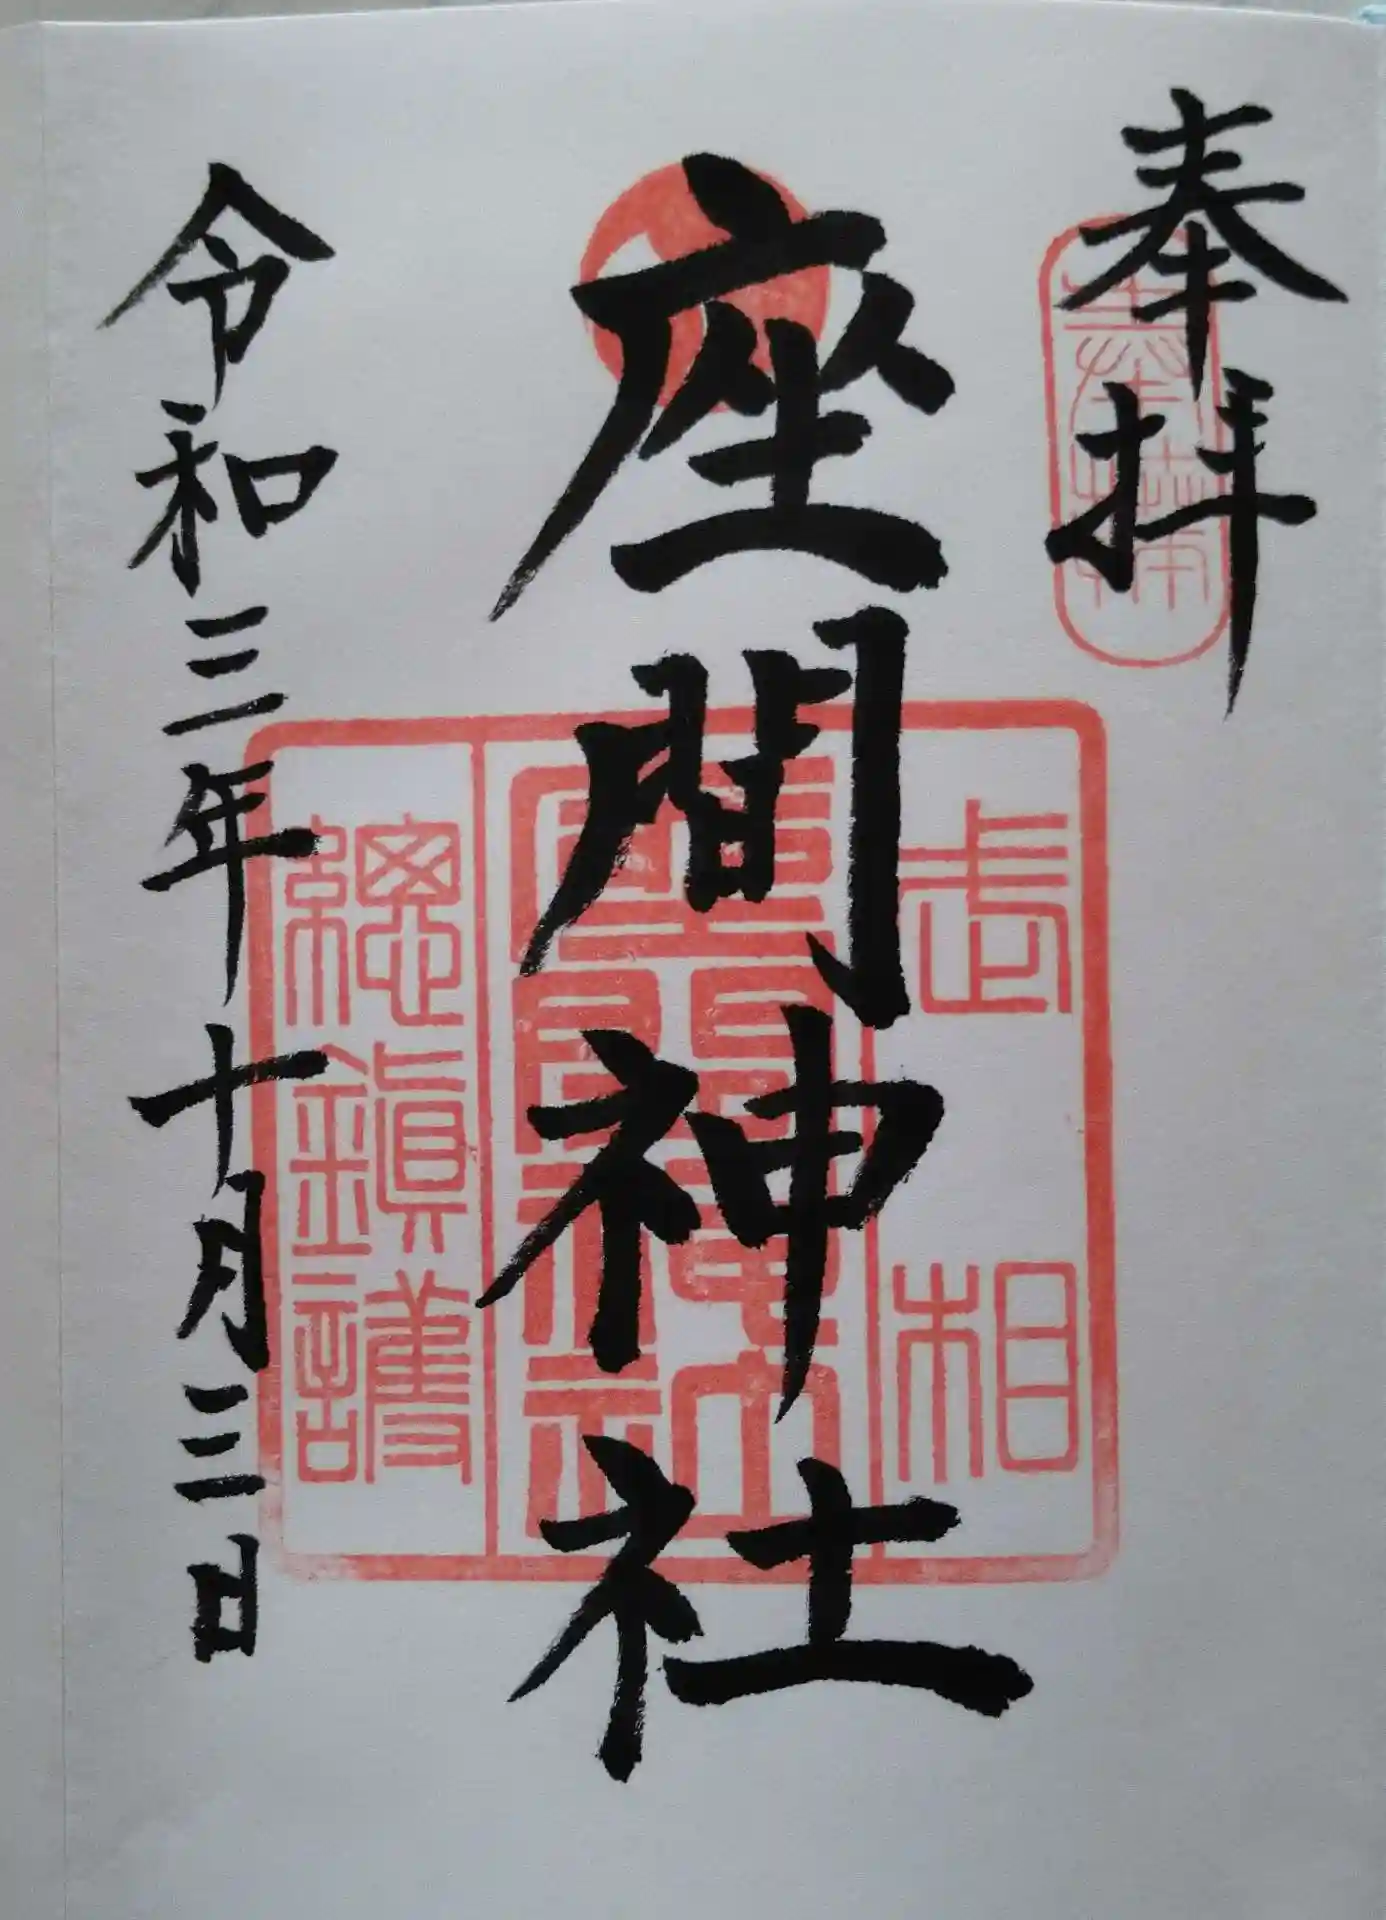 奉拝
奉拝
座間神社
武相
座間神社
總鎮護
令和三年十月三日